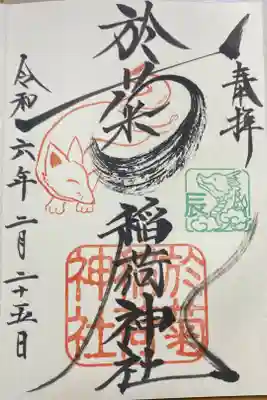 奉拝
於菊稲荷神社
令和六年二月二十五日
辰
於菊
稲荷
神社